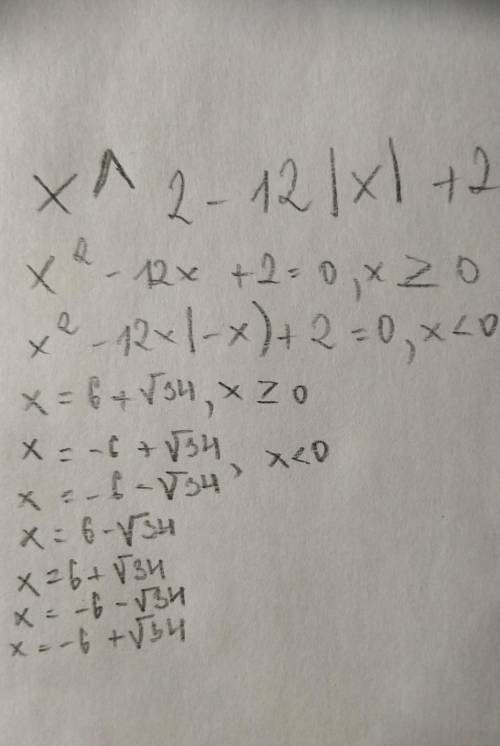 x^2-12|x|+2
x²-12x+2=0, x≥0
x²-12x(-x)+2=0, x<0
x=6+√34, x≥0
x=-6+√34
x=-6-√34, x<0
x=6-√34
x=6+√34
x=-6-√34
x=-6+√34